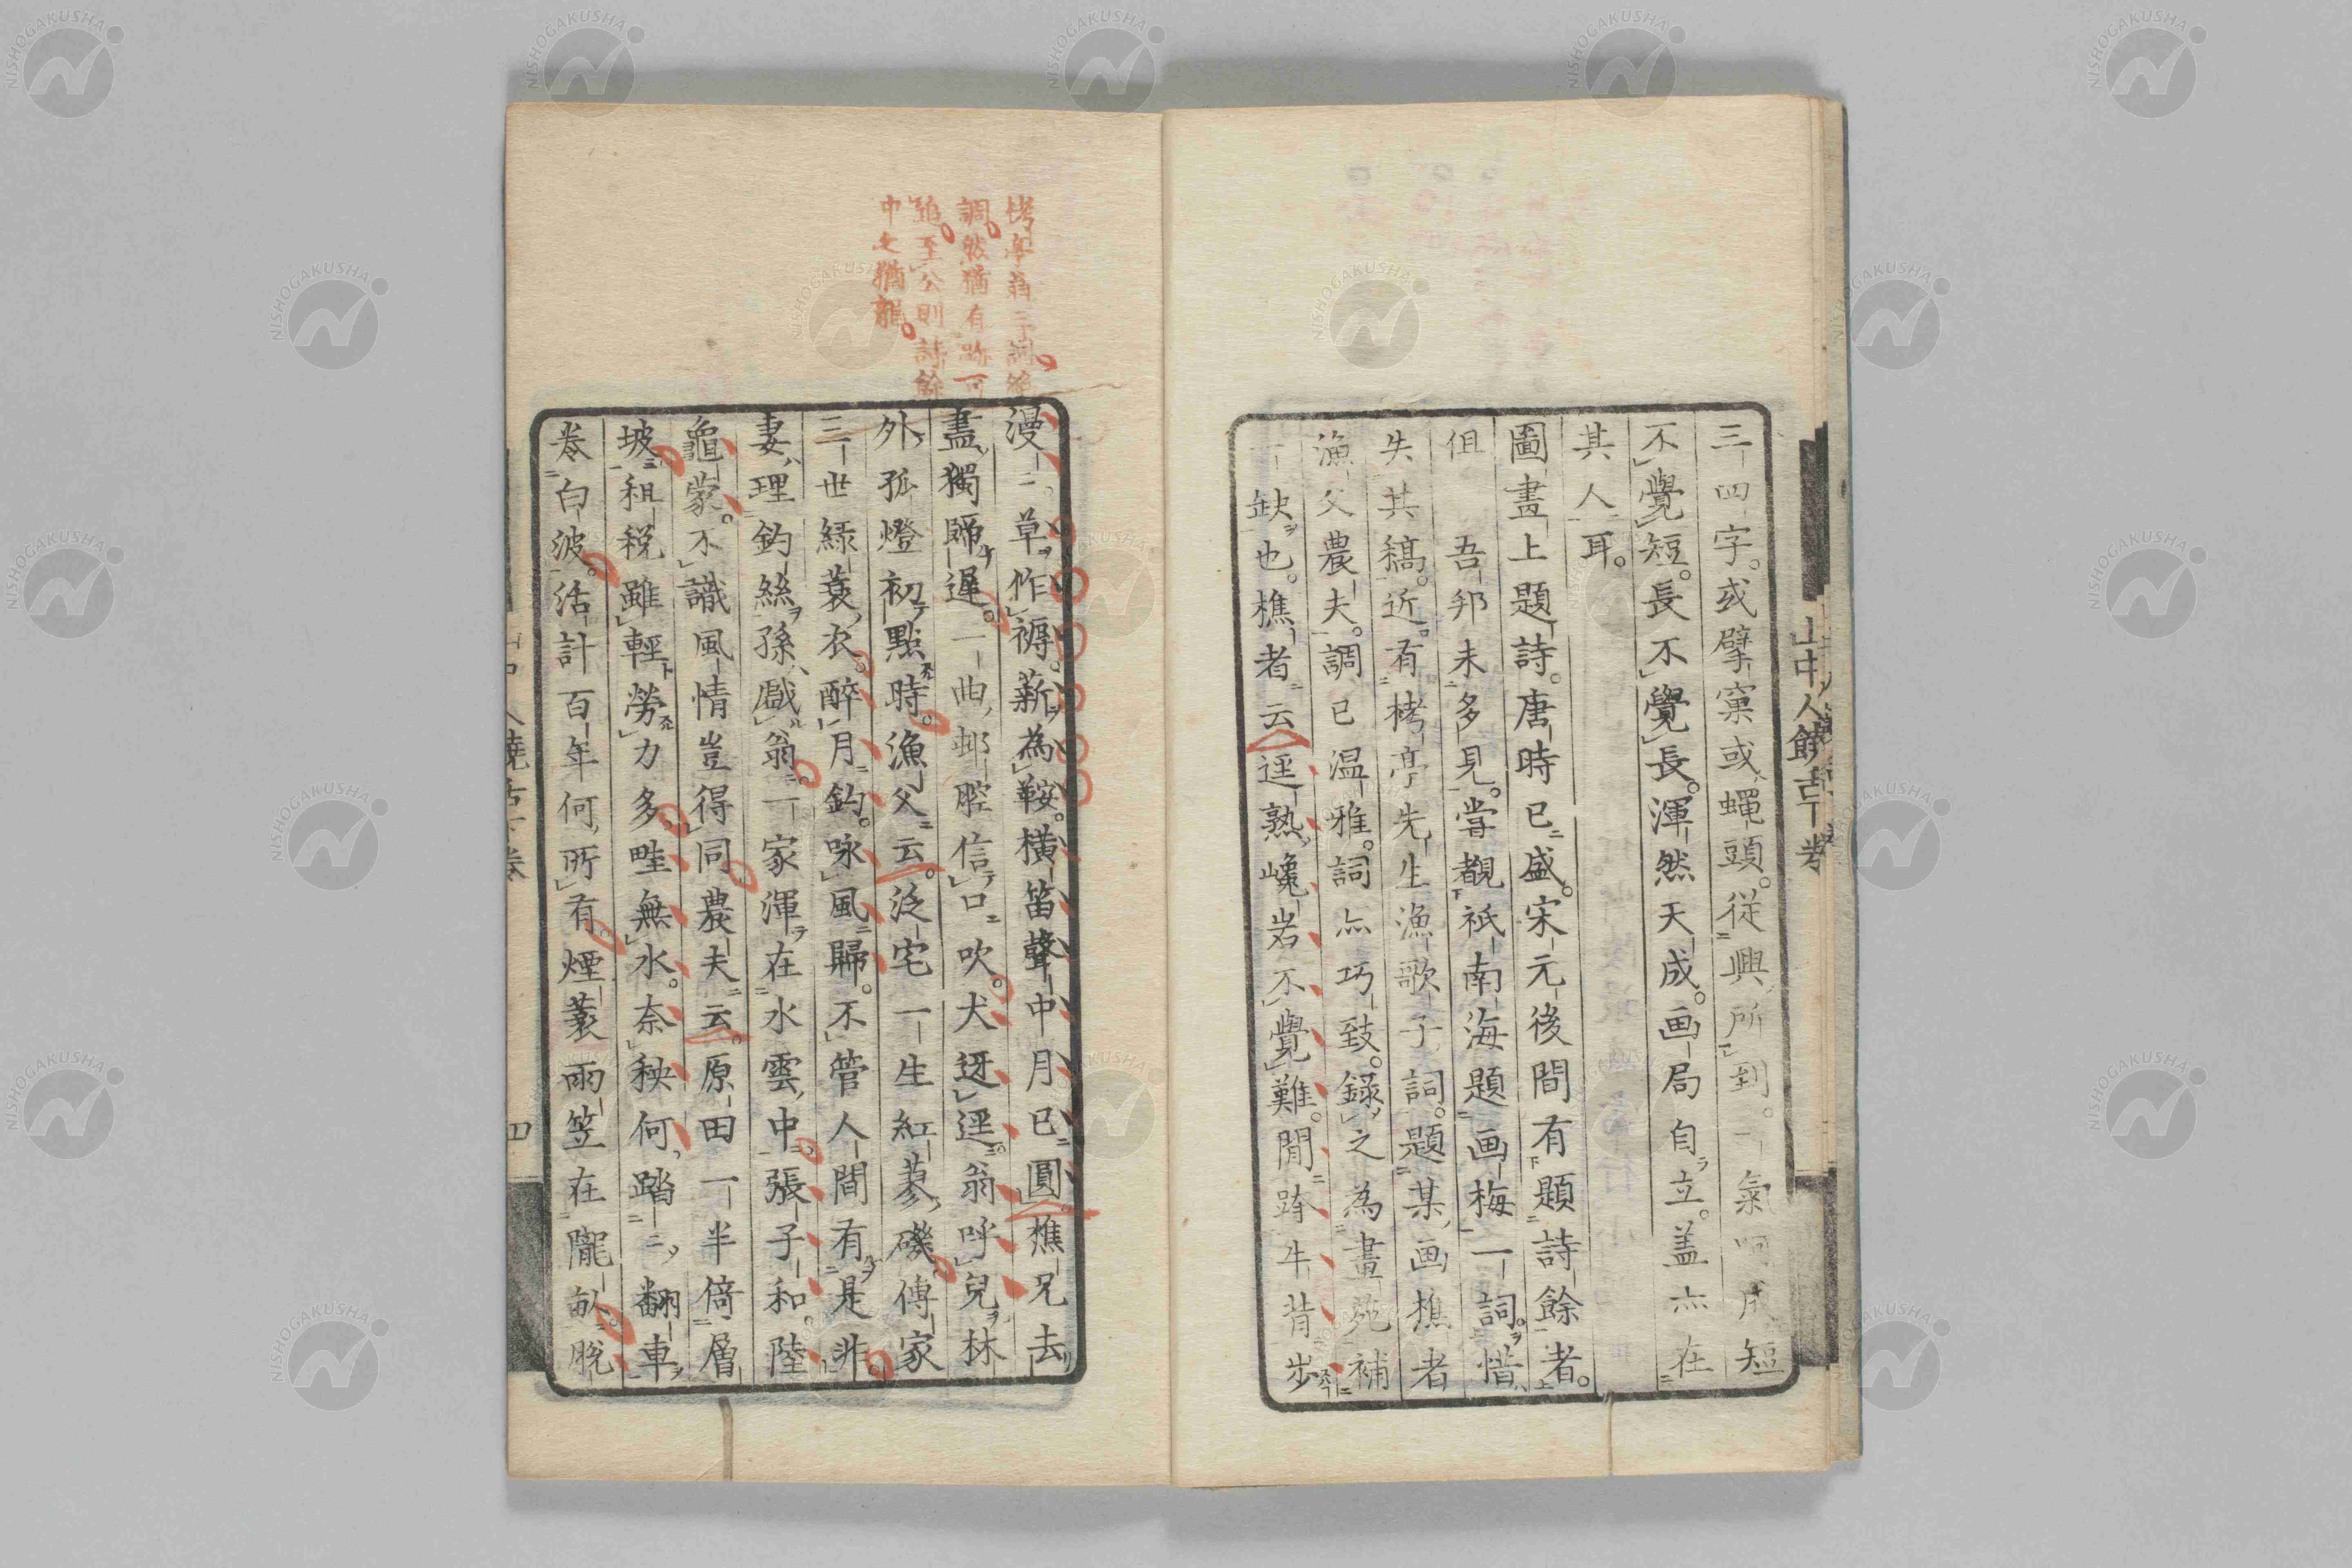 三四字。或擘窠或蠅頭。從興所到。一氣呵成短
不覺短。長不覺長。渾然天成。画局自立。盖亦在
其人耳。
圖畫上題詩。唐時已盛。宋元後間有題詩餘者。
吾邦未多見。嘗覩祇南海題画梅一詞。惜
失其稿。近有栲亭先生漁歌子詞。題某画樵者
漁父農夫。調已温雅。詞亦巧致。錄之為畫苑補
一缺也。樵者云。逕熟巉岩不覺難。閒跨牛背步
漫漫。草作褥。薪為鞍。橫笛聲中月已圓。樵兄去
盡獨歸遲。一曲邨腔信口吹。犬迓逕。翁呼兒。林
外孤燈初點時。漁父云。泛宅一生紅蓼磯。傳家
三世綠蓑衣。醉月釣。咏風歸。不管人間有是非。
妻理釣絲孫戯翁。一家渾在水雲中。張子和。陸
龜蒙。不識風情豈得同。農夫云。原田一半倚層
坡。租税雖輕勞力多。畦無水。奈秧何。踏踏翻車
卷白波。活計百年何所有。煙蓑雨笠在隴畝。脱
栲亭翁三詞絶
調。然猶有跡可
追。至公則詩餘
中之猶龍。
山中人饒舌下卷
四
NISHOGAKUSHA